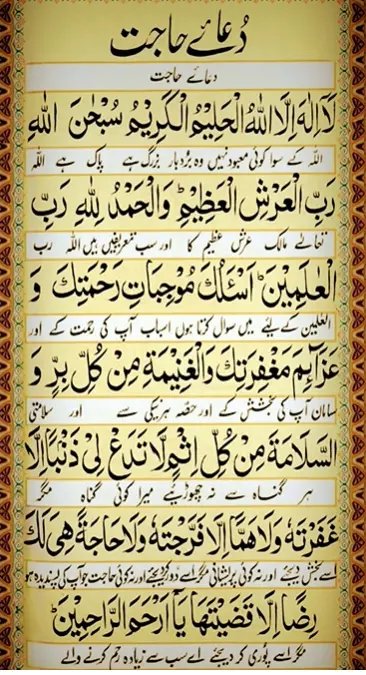 دُعائے حاجت
دعائے حاجت
لَآ اِلٰهَ اِلَّا اللهُ الْحَلِيْمُ الْكَرِيْمُ سُبْحٰنَ اللهِ
اللہ کے سوا کوئی معبود نہیں وہ بڑا بردبار بزرگ ہے پاک ہے اللہ
رَبِّ الْعَرْشِ الْعَظِيْمِ ط وَالْحَمْدُ لِلّٰهِ رَبِّ
تعالےٰ مالک عرش عظیم کا اور سب تعریفیں ہیں اللہ رب
الْعٰلَمِيْنَ ط اَسْئَلُكَ مُوْجِبَاتِ رَحْمَتِكَ وَ
العلمین کے لیئے میں سوال کرتا ہوں اسباب آپ کی رحمت کے اور
عَزَآئِمَ مَغْفِرَتِكَ وَالْغَنِيْمَةَ مِنْ كُلِّ بِرٍّ وَّ
سامان آپ کی بخشش کے اور حصّہ ہر نیکی سے اور سلامتی
السَّلَامَةَ مِنْ كُلِّ اِثْمٍ لَّا تَدَعْ لِيْ ذَنْبًا اِلَّا
ہر گناہ سے نہ چھوڑیئے میرا کوئی گناہ مگر
غَفَرْتَهٗ وَلَا هَمًّا اِلَّا فَرَّجْتَهٗ وَلَا حَاجَةً هِيَ لَكَ
اسے بخش دیجئے اور نہ کوئی پریشانی مگر اسے دور کیجئے اور نہ کوئی حاجت جو آپ کی پسندیدہ ہو
رِضًا اِلَّا قَضَيْتَهَا يَآ اَرْحَمَ الرَّاحِمِيْنَ ط
مگر اسے پوری کر دیجئے اے سب سے زیادہ رحم کرنے والے